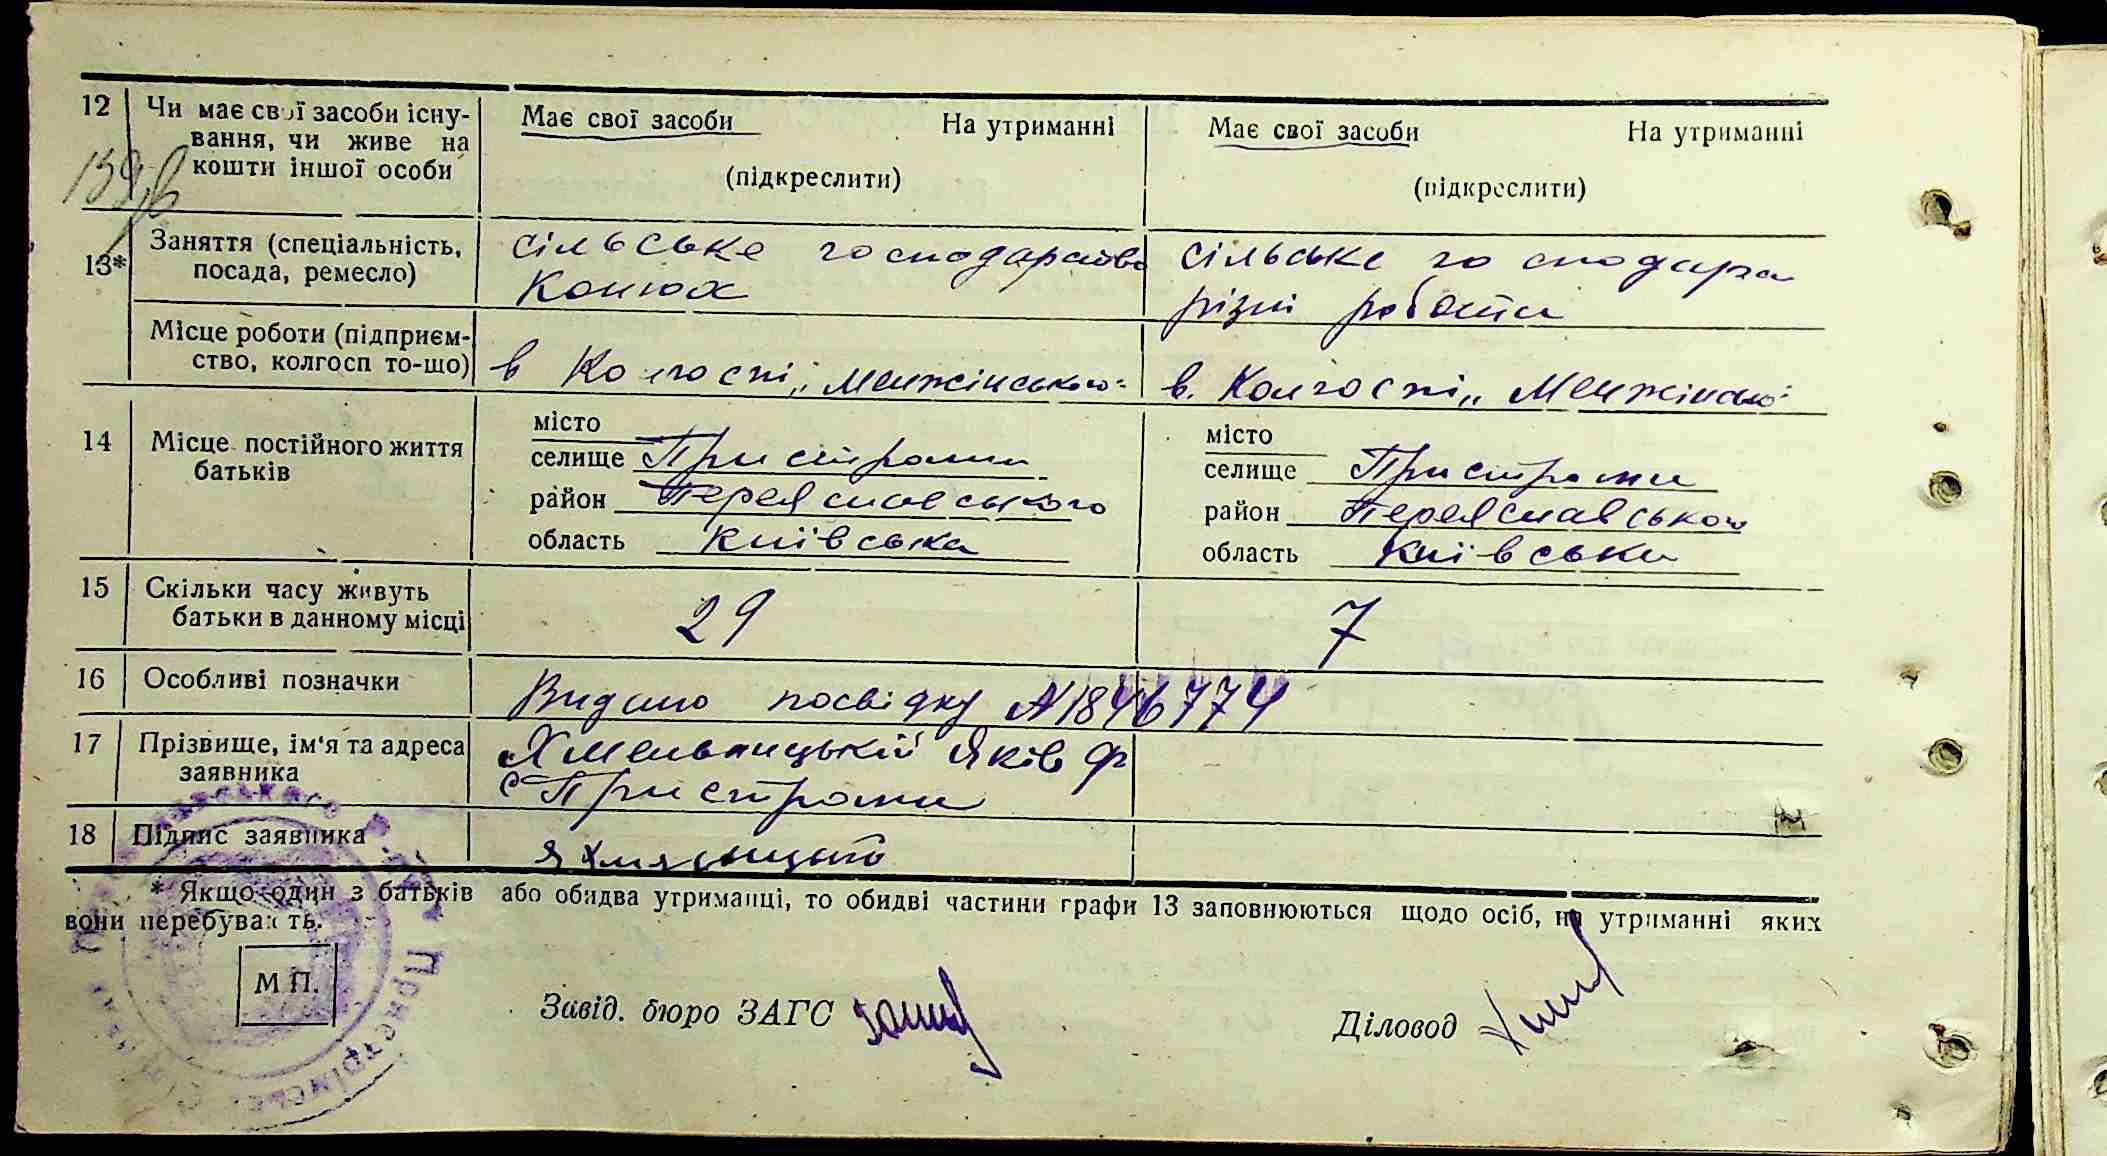 12 Чи має свої засоби існу- Має свої засоби На утриманні Має свої засоби На утриманні
вання, чи живе на
кошти іншої особи (підкреслити) (підкреслити)
13* Заняття (спеціальність, сільське господарство сільське господарка
посада, ремесло) Конюх різні роботи
Місце роботи (підприєм-
ство, колгосп то-що) в Колгоспі „Менжінського" в. Колгоспі „Менжінсько"
14 Місце постійного життя місто місто
батьків селище Пристроми селище Пристроми
район Переяславського район Переяславсько
область Київська область Київська
15 Скільки часу живуть 29 7
батьки в данному місці
16 Особливі позначки Видано посвідку №1846774
17 Прізвище, ім'я та адреса Хмельницькій Яків Ф
заявника с Пристроми
18 Підпис заявника
* Якщо один з батьків або обидва утриманці, то обидві частини графи 13 заповнюються щодо осіб, на утриманні яких
вони перебувають.
М П.
Завід. бюро ЗАГС Діловод